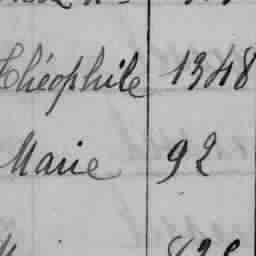 Théophile 1348
Marie 92